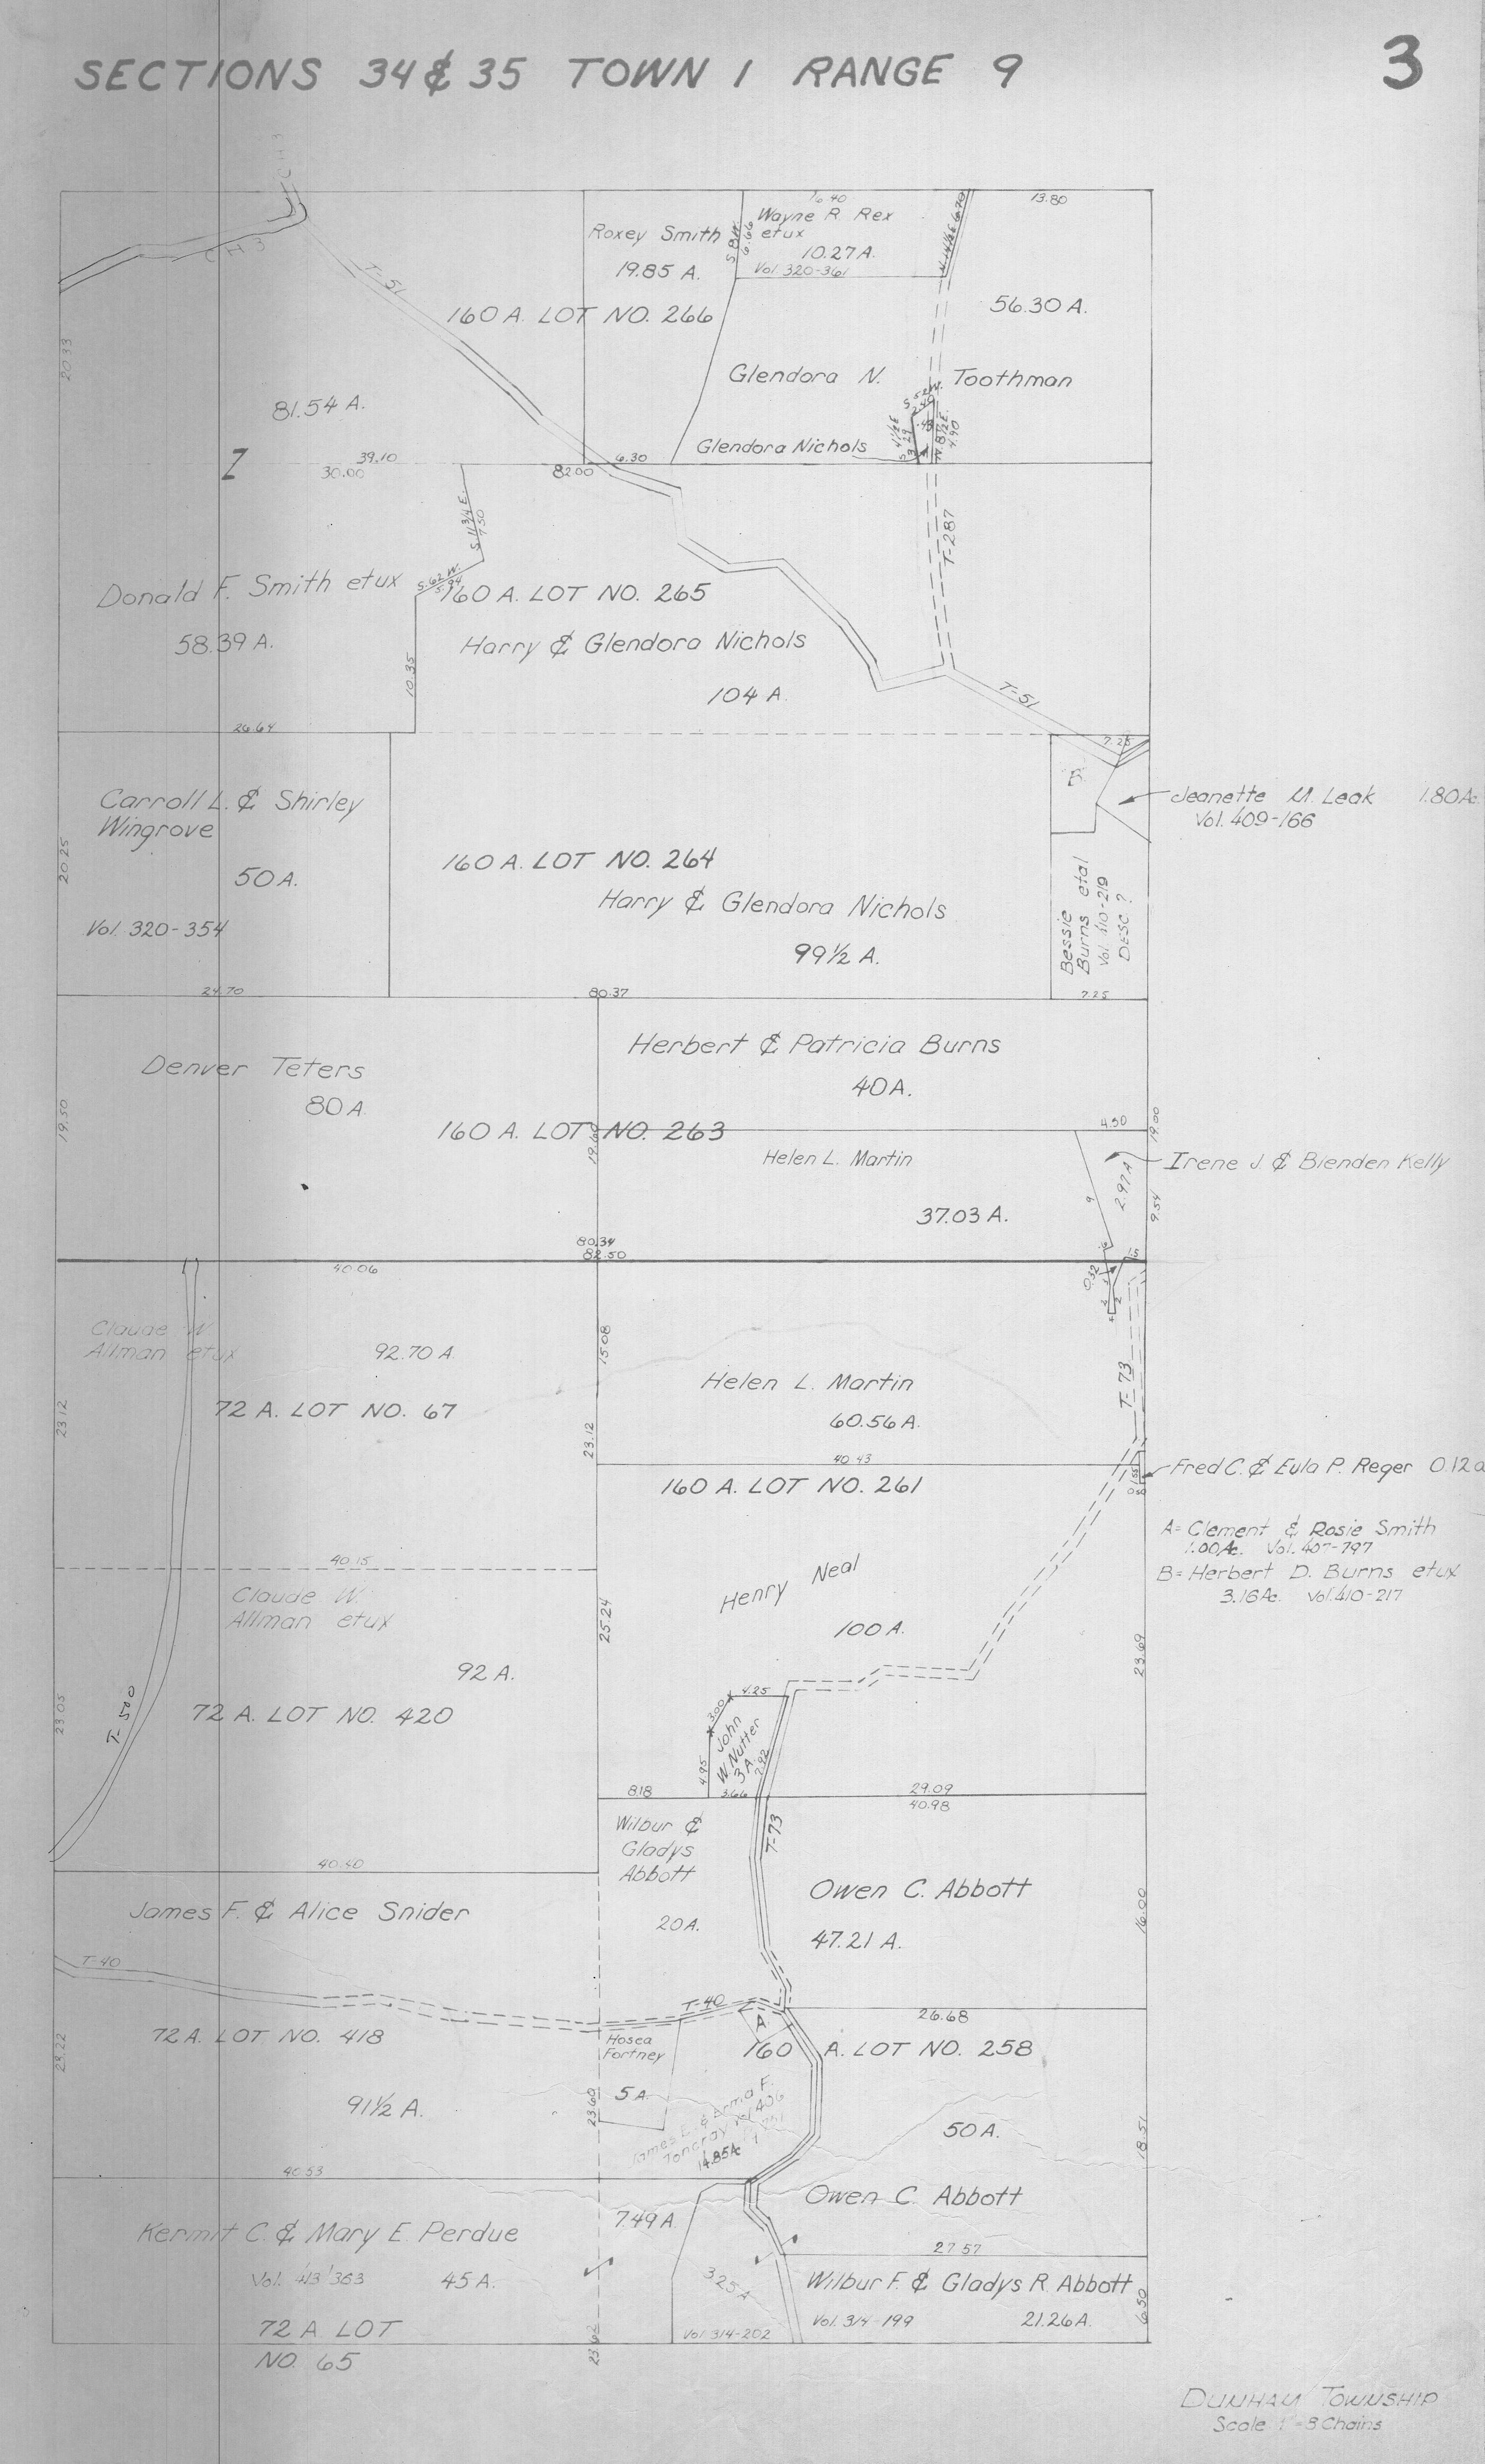 SECTIONS 34 & 35 TOWN 1 RANGE 9
3
CH3
CH3
T-51
20.33
81.54 A.
Roxey Smith
19.85 A.
S. 8 W.
6.66
16.40
Wayne R. Rex
etux
10.27 A.
Vol. 320-361
6.70
13.80
56.30 A.
160 A. LOT NO. 266
Glendora N. Toothman
Glendora Nichols
S. 4½ E.
4.90
Z
39.10
30.00
82.00
6.30
S. 11¾ E.
7.50
S. 62 W.
5.94
T-287
Donald F. Smith etux
58.39 A.
160 A. LOT NO. 265
Harry & Glendora Nichols
104 A.
10.35
T-51
26.64
7.25
B
Jeanette M. Leak 1.80 Ac.
Vol. 409-166
Carroll L. & Shirley
Wingrove
50 A.
Vol. 320-354
20.25
160 A. LOT NO. 264
Harry & Glendora Nichols
99½ A.
Bessie
Burns etal
Vol. 410-219
DESC ?
24.70
80.37
7.25
Denver Teters
80 A.
19.50
Herbert & Patricia Burns
40 A.
160 A. LOT NO. 263
19.60
4.50
19.00
Helen L. Martin
37.03 A.
2.97 A
9
9.54
Irene J. & Blenden Kelly
80.34
82.50
40.06
.15
0.32
Claude W.
Allman etux
92.70 A.
72 A. LOT NO. 67
23.12
15.08
23.12
Helen L. Martin
60.56 A.
T-73
40.43
160 A. LOT NO. 261
Fred C. & Eula P. Reger 0.12 a
A= Clement & Rosie Smith
1.00 Ac. Vol. 407-797
B= Herbert D. Burns etux
3.16 Ac. Vol. 410-217
40.15
Claude W.
Allman etux
92 A.
72 A. LOT NO. 420
23.05
T-500
25.24
Henry Neal
100 A.
23.69
4.25
3.00
John
W. Nutter
3 A.
4.95
2.92
8.18
3.66
29.09
40.98
T-73
Wilbur &
Gladys
Abbott
20 A.
40.40
Owen C. Abbott
47.21 A.
16.00
James F. & Alice Snider
T-40
T-40
A.
26.68
72 A. LOT NO. 418
23.22
91½ A.
Hosea
Fortney
5 A.
23.60
160 A. LOT NO. 258
James E. & Erma F.
Toncray Vol 406
14.85 Ac
50 A.
18.51
Owen C. Abbott
40.53
7.49 A.
27.57
Kermit C. & Mary E. Perdue
Vol. 413 '363 45 A.
72 A. LOT
NO. 65
23.62
3.25 A
Vol. 314-202
Wilbur F. & Gladys R. Abbott
Vol. 314-199 21.26 A.
6.50
DUNHAM TOWNSHIP
Scale 1" = 8 Chains